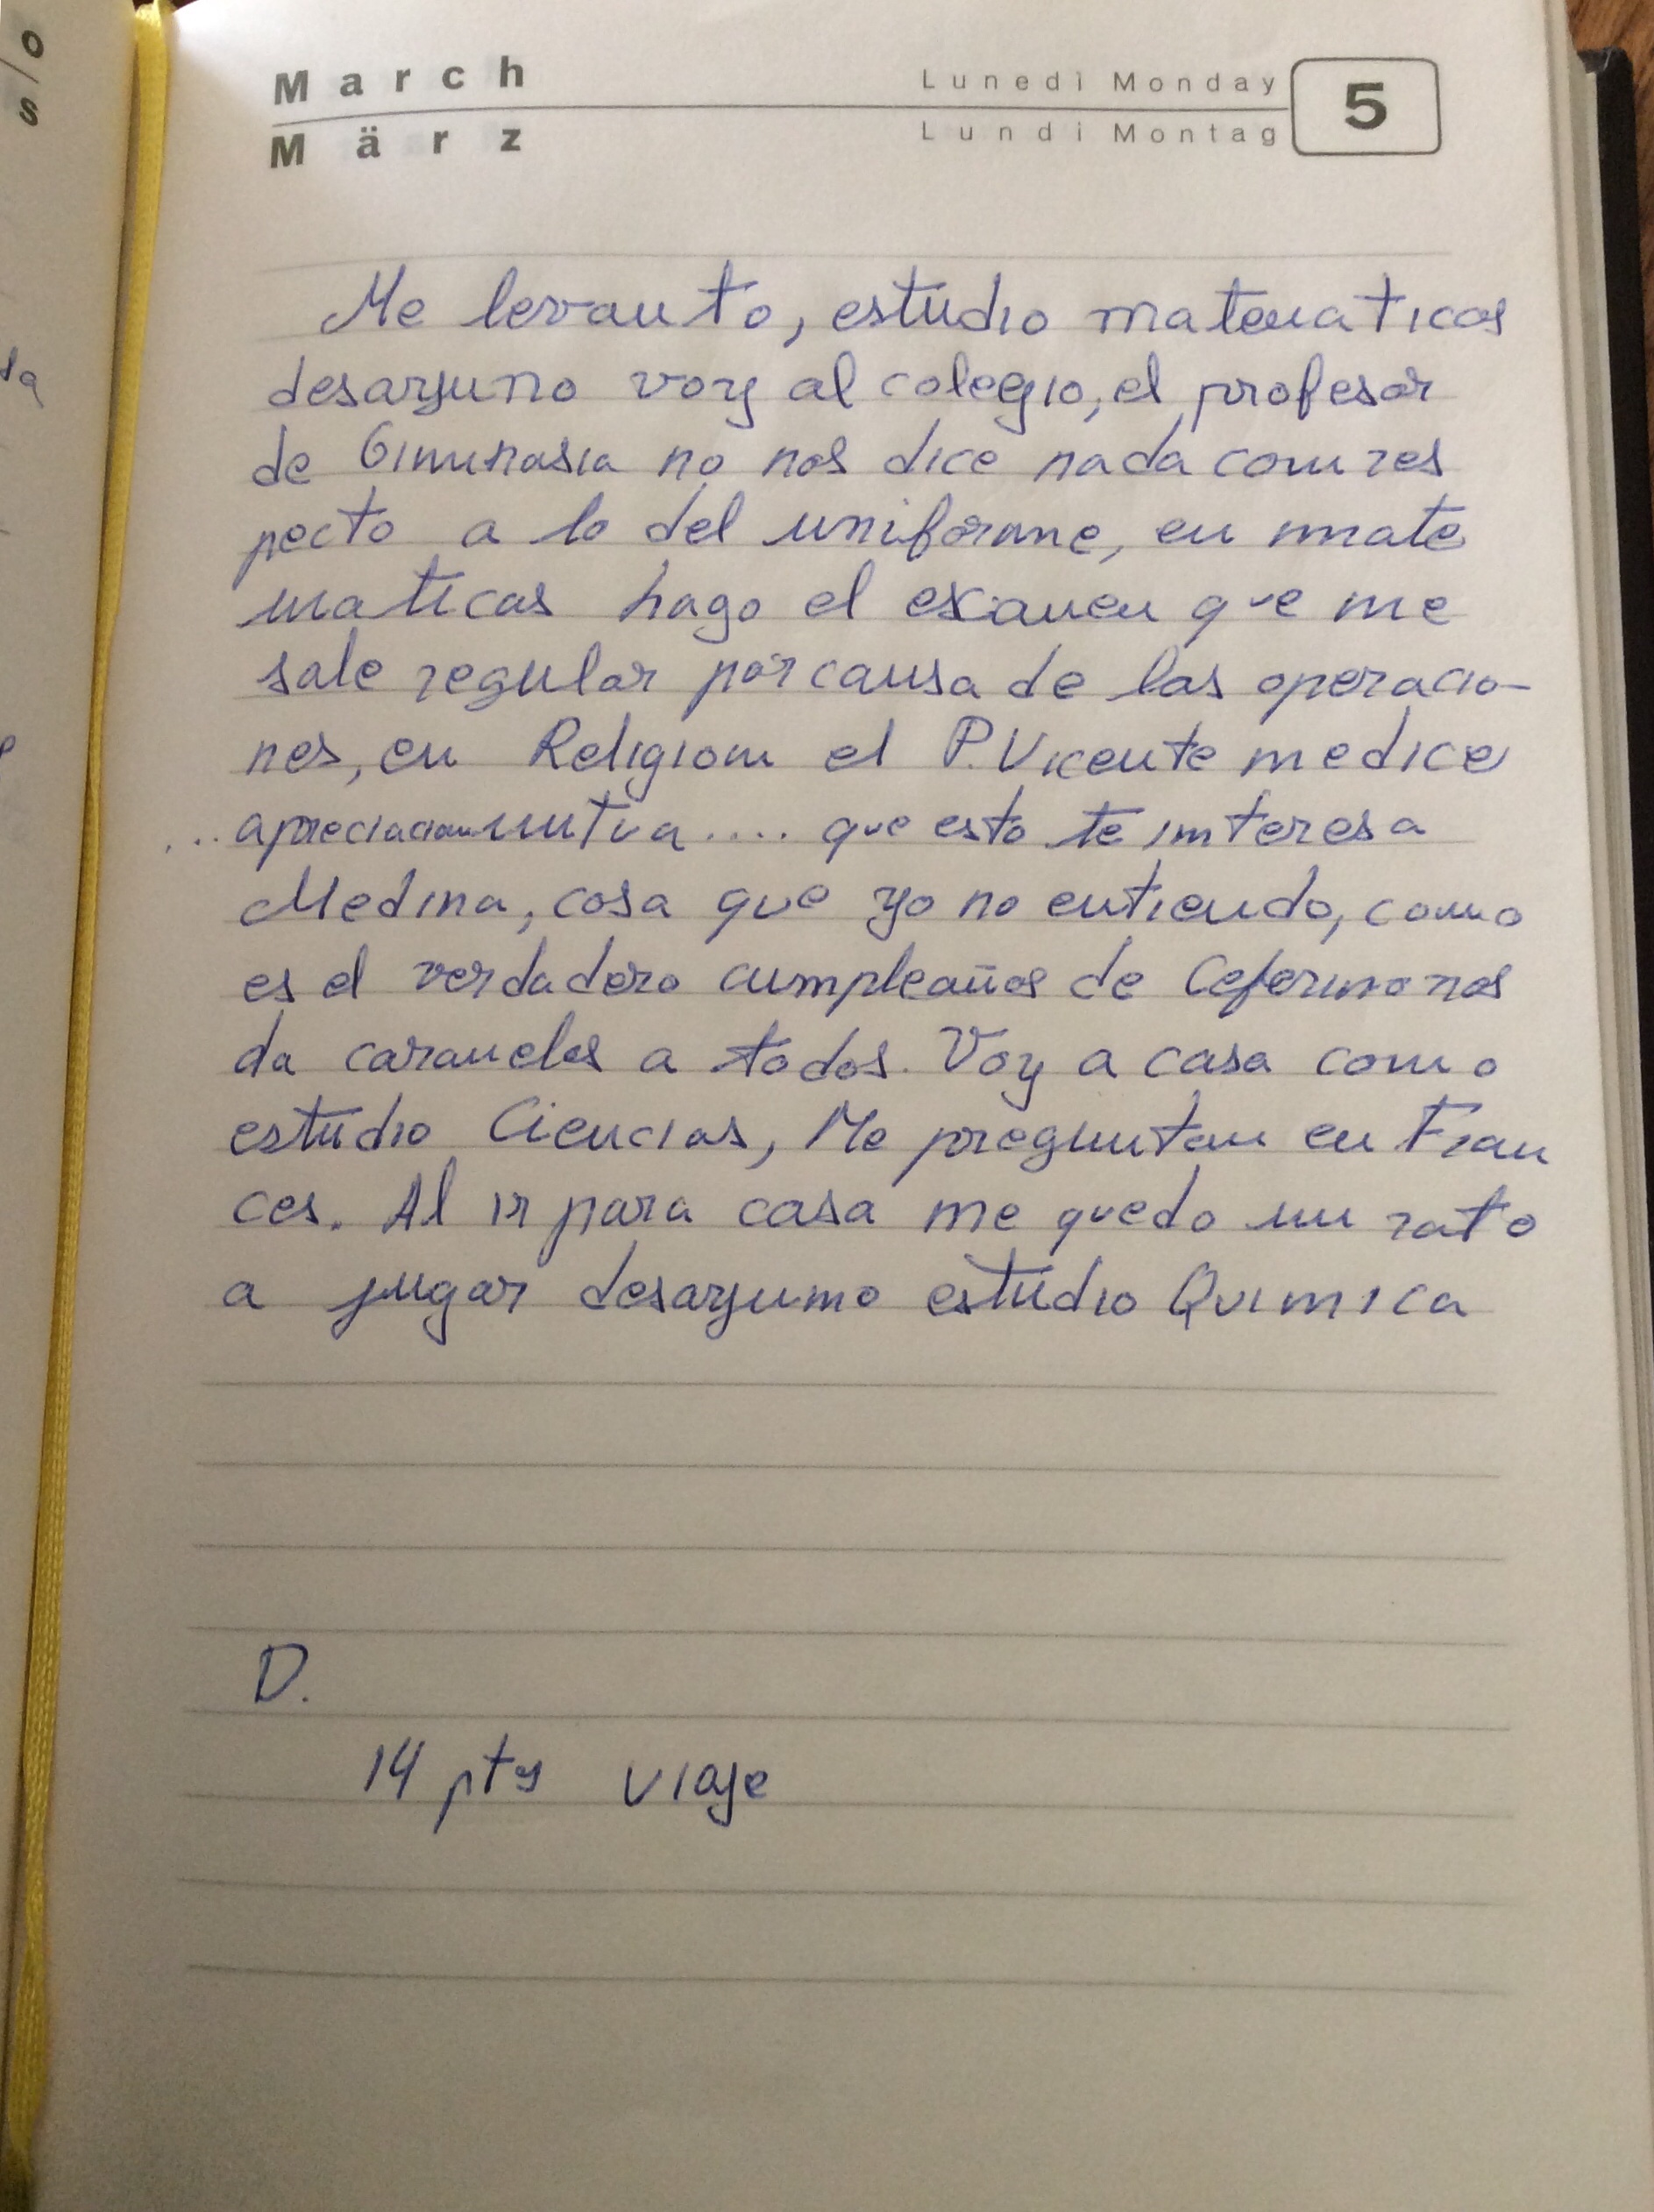 March
März
Lunedì Monday
Lundi Montag
5
Me levanto, estudio matematicas
desayuno voy al colegio, el profesor
de Gimnasia no nos dice nada com res
pecto a lo del uniforme, en mate
maticas hago el examen que me
sale regular por causa de las operacio-
nes, en Religiom el P. Vicente me dice
... apreciacion mutua .... que esto te imteresa
Medina, cosa que yo no entiendo, como
es el verdadero cumpleaños de Ceferino nos
da caramelos a todos. Voy a casa como
estudio Ciencias, Me preguntan en Fran
ces. Al ir para casa me quedo un rato
a jugar desayumo estudio Quimica
D.
14 pts viaje